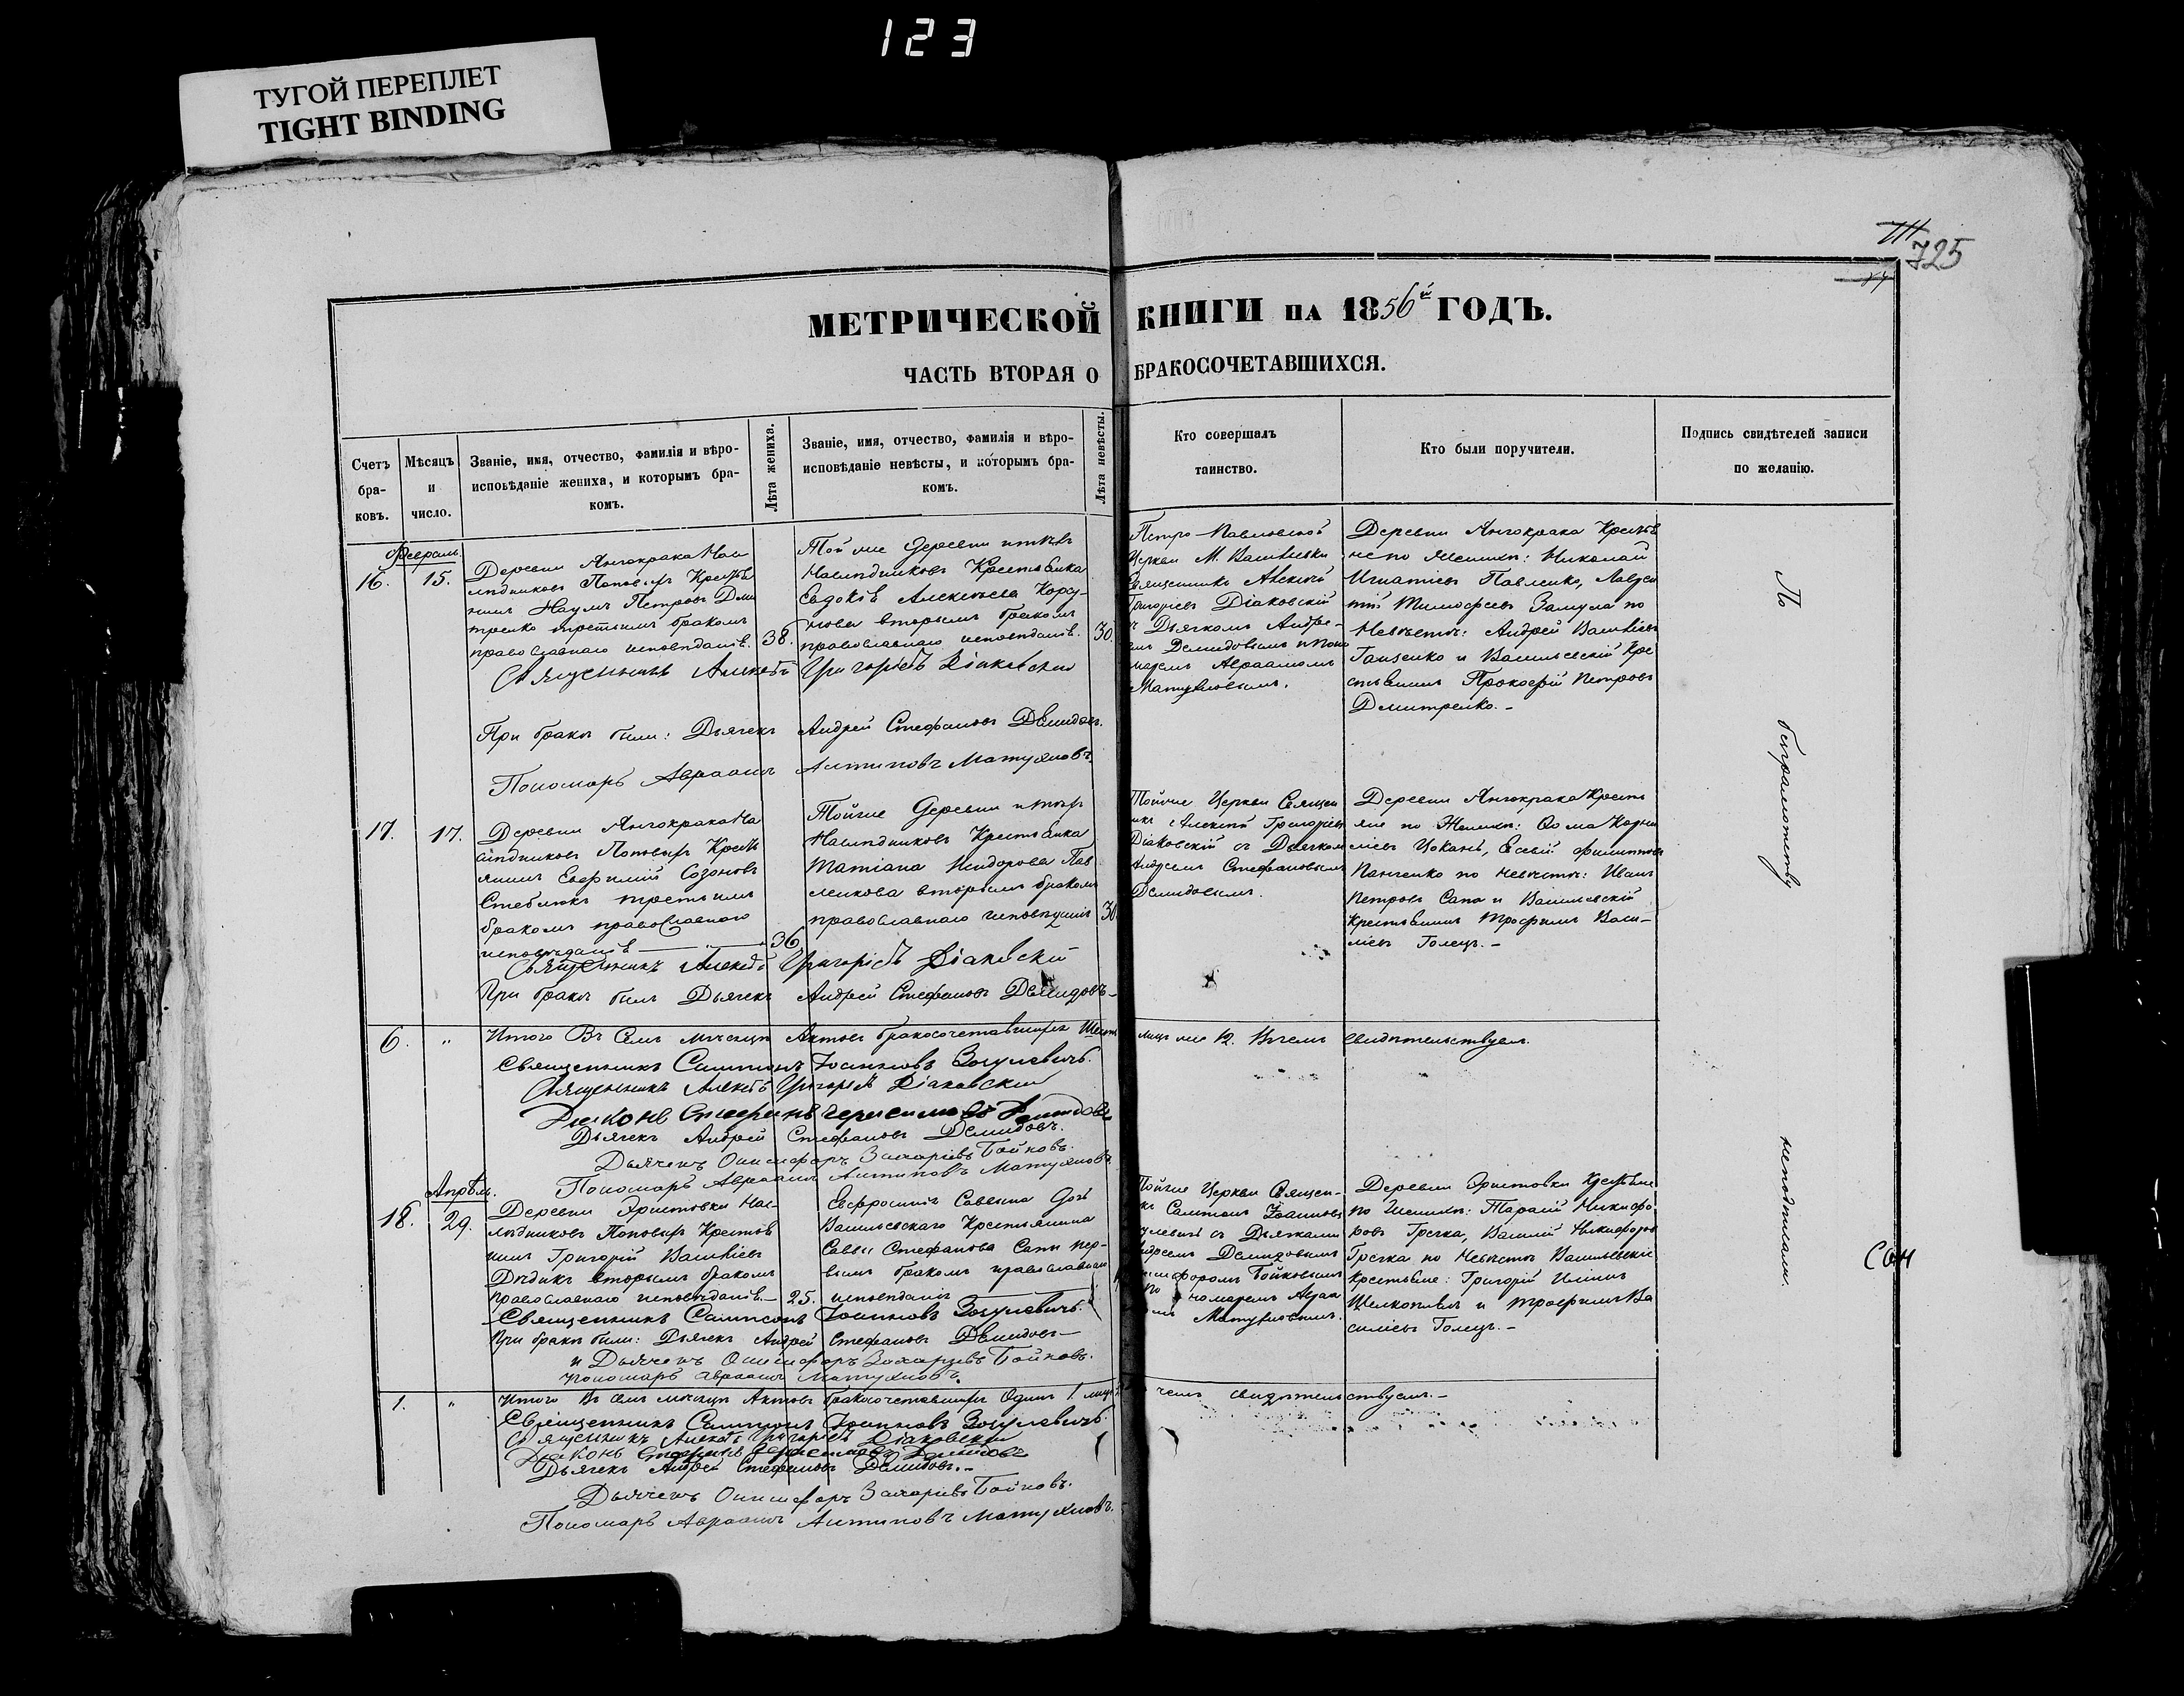 123
ТУГОЙ ПЕРЕПЛЕТ
TIGHT BINDING
725
МЕТРИЧЕСКОЙ КНИГИ НА 1856й ГОДЪ.
ЧАСТЬ ВТОРАЯ О БРАКОСОЧЕТАВШИХСЯ.
Счетъ
бра-
ковъ.
Мѣсяцъ
и
число.
Званіе, имя, отчество, фамилія и вѣро-
исповѣданіе жениха, и которымъ бра-
комъ.
Лѣта жениха.
Званіе, имя, отчество, фамилія и вѣро-
исповѣданіе невѣсты, и которымъ бра-
комъ.
Лѣта невѣсты.
Кто совершалъ
таинство.
Кто были поручители.
Подпись свидѣтелей записи
по желанію.
Февраль
16.
15.
Деревни Янчокрака Нас
лѣдниковъ Поповыхъ Крестья
нинъ Наумъ Петровъ Дми
тренко третьимъ бракомъ
православнаго исповѣданія.
38.
Той же деревни и тѣхъ
Наслѣдниковъ Крестьянка
Евдокія Алексѣева Корсу-
нова вторымъ бракомъ
православнаго исповѣданія.
30.
Петро-Павловской
Церкви М. Васильевки
Священникъ Алексѣй
Григорьевъ Діаковскій
съ Дьячкомъ Андре-
емъ Демидовымъ и Поно
маремъ Авраамомъ
Матушновымъ.
Деревни Янчокрака Крестья
не по Жениху: Николай
Игнатіевъ Павленко, Лаврен
тій Тимофеевъ Замула по
Невѣстѣ: Андрей Васильевъ
Ганзенко и Васильевскій Кре
стьянинъ Прокофій Петровъ
Дмитренко.-
Священникъ Алексѣй Григоріевъ Діаковскій
При бракѣ были: Дьячекъ Андрей Стефановъ Демидовъ.
Пономарь Авраамъ Антиповъ Матушновъ
17.
17.
Деревни Янчокрака На
слѣдниковъ Поповыхъ Кресть
янинъ Евфимій Созоновъ
Стеблюкъ третьимъ
бракомъ православнаго
исповѣданія
36
Той же деревни и тѣхъ
Наслѣдниковъ Крестьянка
Татіана Исидорова Пав
ленкова вторымъ бракомъ
православнаго исповѣданія
30
Той же Церкви Священ
никъ Алексѣй Григорьевъ
Діаковскій съ Дьячкомъ
Андреемъ Стефановымъ
Демидовымъ.
Деревни Янчокрака Кресть
яне по Жениху: Ѳома Корни
ліевъ Цоканъ, Евсѣй Филипповъ
Панченко по Невѣстѣ: Иванъ
Петровъ Сапа и Васильевскій
Крестьянинъ Трофимъ Васи-
ліевъ Голецъ.-
Священникъ Алексѣй Григоріевъ Діаковскій
При бракѣ былъ Дьячекъ Андрей Стефановъ Демидовъ-
6. " Итого Въ семъ мѣсяцѣ Актовъ бракосочетавшихся Шесть лицъ же 12. Въ чемъ свидѣтельствуемъ.
Священникъ Сампсонъ Іоанновъ Зосулевичъ.
Священникъ Алексѣй Григоріевъ Діаковскій
Діаконъ Стефанъ Герасимовъ Демидовъ
Дьячекъ Андрей Стефановъ Демидовъ.
Дьячекъ Онисифоръ Захаріевъ Бойковъ.
Пономарь Авраамъ Антиповъ Матушновъ
Апрѣль.
18.
29.
Деревни Эристовки Нас-
лѣдниковъ Поповыхъ Крестья
нинъ Григорій Васильевъ
Дѣдикъ вторымъ бракомъ
православнаго исповѣданія.-
25.
Евфросинія Саввина дочь
Васильевскаго Крестьянина
Саввы Стефанова Сапы пер-
вымъ бракомъ православнаго
исповѣданія
Той же Церкви Священ-
никъ Сампсонъ Іоанновъ
Зосулевичъ съ Дьячками
Андреемъ Демидовымъ
Онисифоромъ Бойковымъ
и Пономаремъ Авраа
момъ Матушновымъ.
Деревни Эристовки Крестьяне
по Жениху: Тарасій Никифо
ровъ Гречка, Василій Никифоровъ
Гречка по Невѣстѣ Васильевскіе
Крестьяне: Григорій Ильинъ
Щелкопляс и Трофимъ Ва
силіевъ Голецъ.-
Священникъ Сампсонъ Іоанновъ Зосулевичъ.
При бракѣ были: Дьячекъ Андрей Стефановъ Демидовъ-
и Дьячекъ Онисифоръ Захаріевъ Бойковъ.
Пономарь Авраамъ Матушновъ.
1. " Итого Въ семъ мѣсяцѣ Актовъ бракосочетавшихся Одинъ 1. лицъ 2 чемъ свидѣтельствуемъ.-
Священникъ Сампсонъ Іоанновъ Зосулевичъ.
Священникъ Алексѣй Григоріевъ Діаковскій
Діаконъ Стефанъ Герасимовъ Демидовъ
Дьячекъ Андрей Стефановъ Демидовъ.-
Дьячекъ Онисифоръ Захаріевъ Бойковъ.
Пономарь Авраамъ Антиповъ Матушновъ.
По безграмотству неподписали.